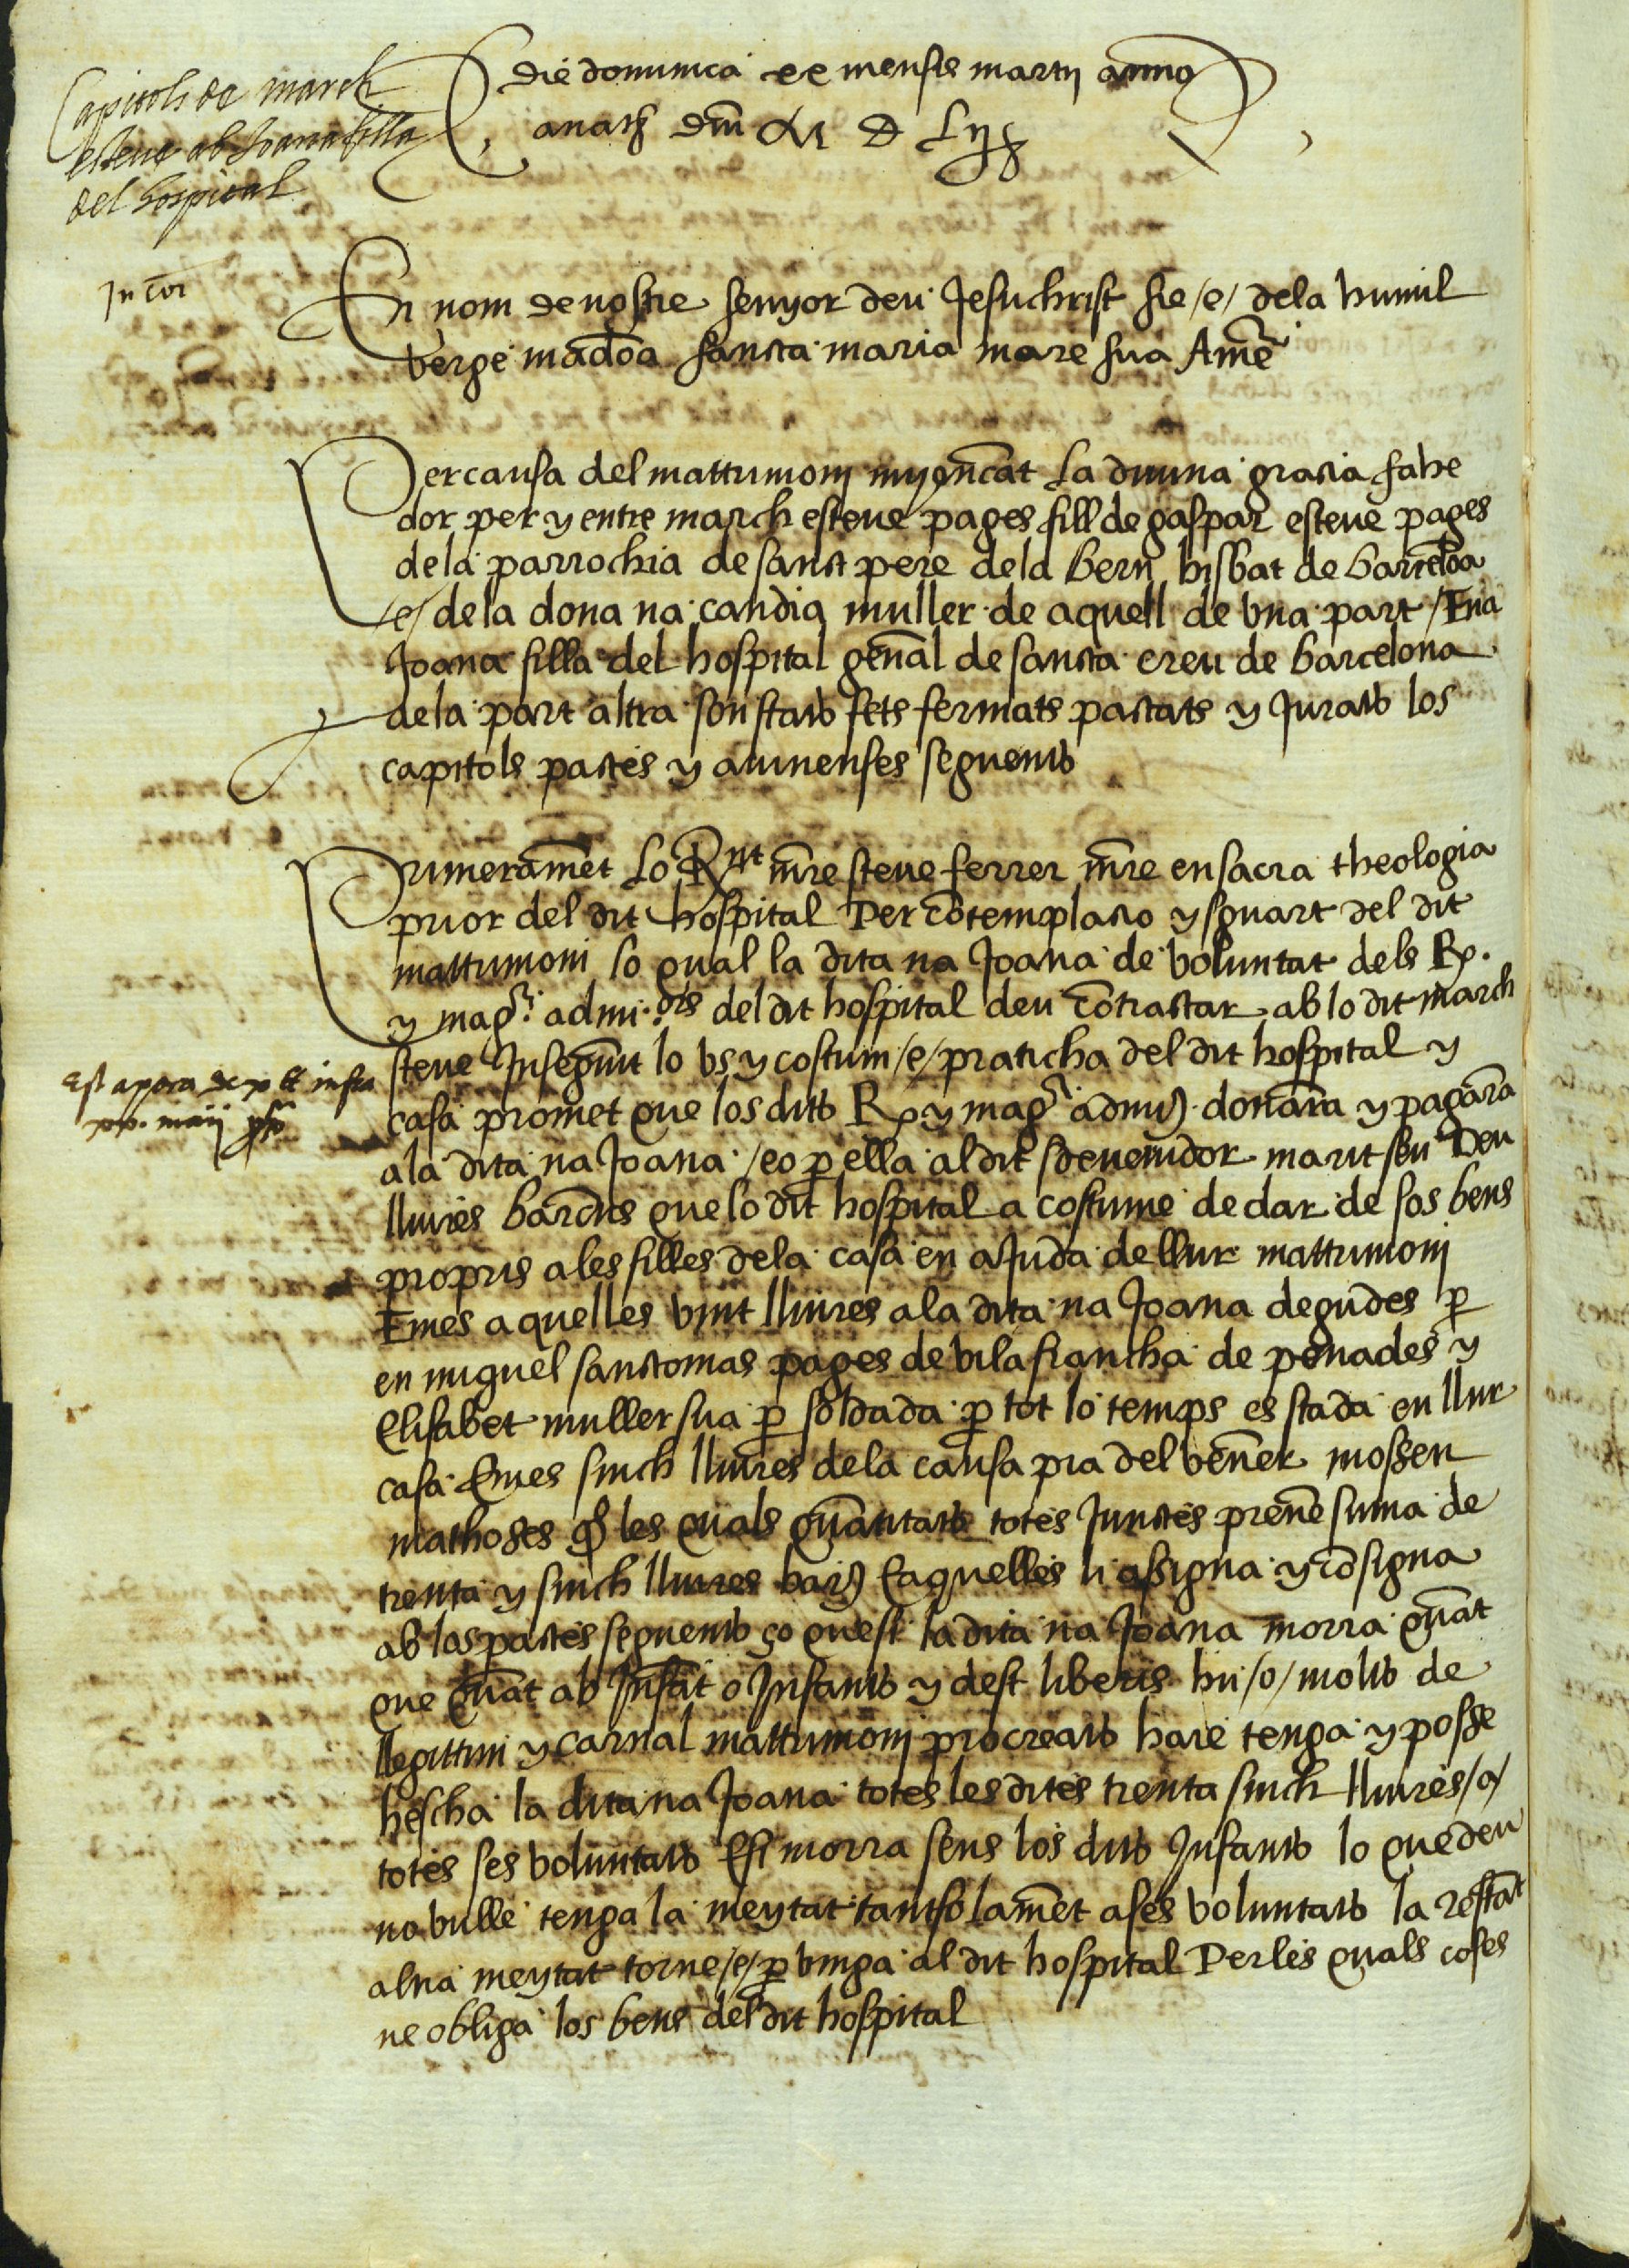 Capitols de march
esteve ab Joana filla
del hospital
die dominica xx mensis martij anno
a natt dñi M D Lij
In cor
En nom de nostre senyor deu Jesuchrist sie /e/ dela humil
verge madoa sancta maria mare sua Amē
Per causa del mattrimonj mijençāt La divina gracia fahe
dor per y entre march esteve pages fill de gaspar esteve pages
dela parrochia de sanct pere dela bern bisbat de barcelōa
/e/ dela dona na candia muller de aquell de vna part / E na
Joana filla del hospital geñal de sancta creu de barcelona
dela part altra son stats fets fermats pactats y Jurats los
capitols pactes y avinenses seguents
Primeramēt Lo Rnt mr̄e steve ferrer mr̄e en sacra theologia
prior del dit hospital Per cōtemplatio y sguart del dit
mattrimoni lo qual la dita na Joana de voluntat dels Rs.
y magchs. admi.ors del dit hospital deu cōtractar ab lo dit march
steve Inseguīt lo vs y costum /e/ praticha del dit hospital y
casa promet que los dits Rs y magchs admrs. donarā y pagarā
Est apoca de xx et infra
xx. maij
ala dita na Joana /eo p ella al dit sdevenidor marit seu Deu
lliures barch̄s que lo dit hospital acostume de dar de sos bens
propris a les filles dela casa en aJuda de llur mattrimonj
E mes aquelles vint lliures ala dita na Joana degudes p
en miquel sanctomas pages de vilafrancha de penades y
Elisabet muller sua p soldada p tot lo temps es stada en llur
casa E mes sinch lliures dela causa pia del vener mossen
mathoses qs les quals quātitats totes Junctes prenē suma de
trenta y sinch lliures bars E aquelles li assigna y cōsigna
ab los pactes seguents ço quesi la dita na Joana morra quāt
que quāt ab Infāt o Infants y dest liberis hu /o/ molts de
llegittim y carnal mattrimonj procreats hage tenga y posse
hescha la dita na Joana totes les dites trenta sinch lliures /a/
totes ses voluntats E si morra sens los dits Infants lo que deu
no vulle tenga la meytat tantsolamēt a ses voluntats la restāt
altra meytat torne /e/ pvinga al dit hospital Per les quals coses
ne obliga los bens del dit hospital